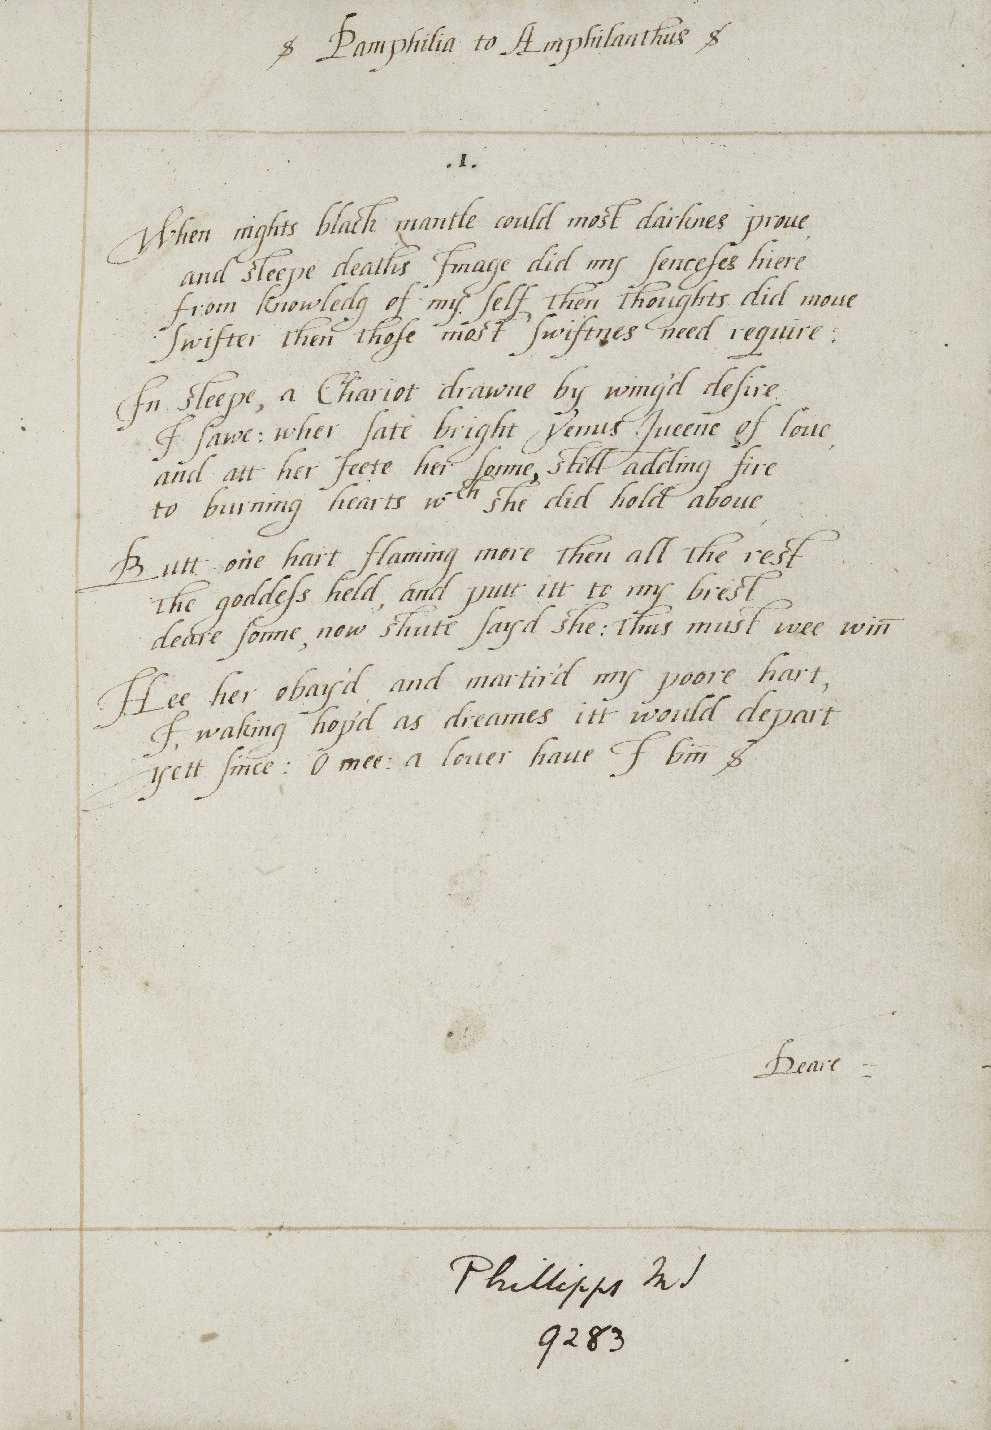 $ Pamphilia to Amphilanthus $
.1.
When nights black mantle could most darknes proue,
and sleepe deaths Image did my senceses hiere
from knowledg of my self, then thoughts did moue
swifter then those most swiftnes need require:
In sleepe, a Chariot drawne by wing'd desire
I sawe: wher sate bright Venus Queene of loue,
and att her feete her sonne, still adding fire
to burning hearts wch she did hold aboue,
Butt one hart flaming more then all the rest
the goddess held, and putt itt to my brest
deare sonne, now shute sayd she: thus must wee win̄
Hee her obay'd, and martir'd my poore hart,
I, waking hop'd as dreames itt would depart
yett since: O mee: a louer haue I bin̄ $
Deare =
Phillipps MS
9283